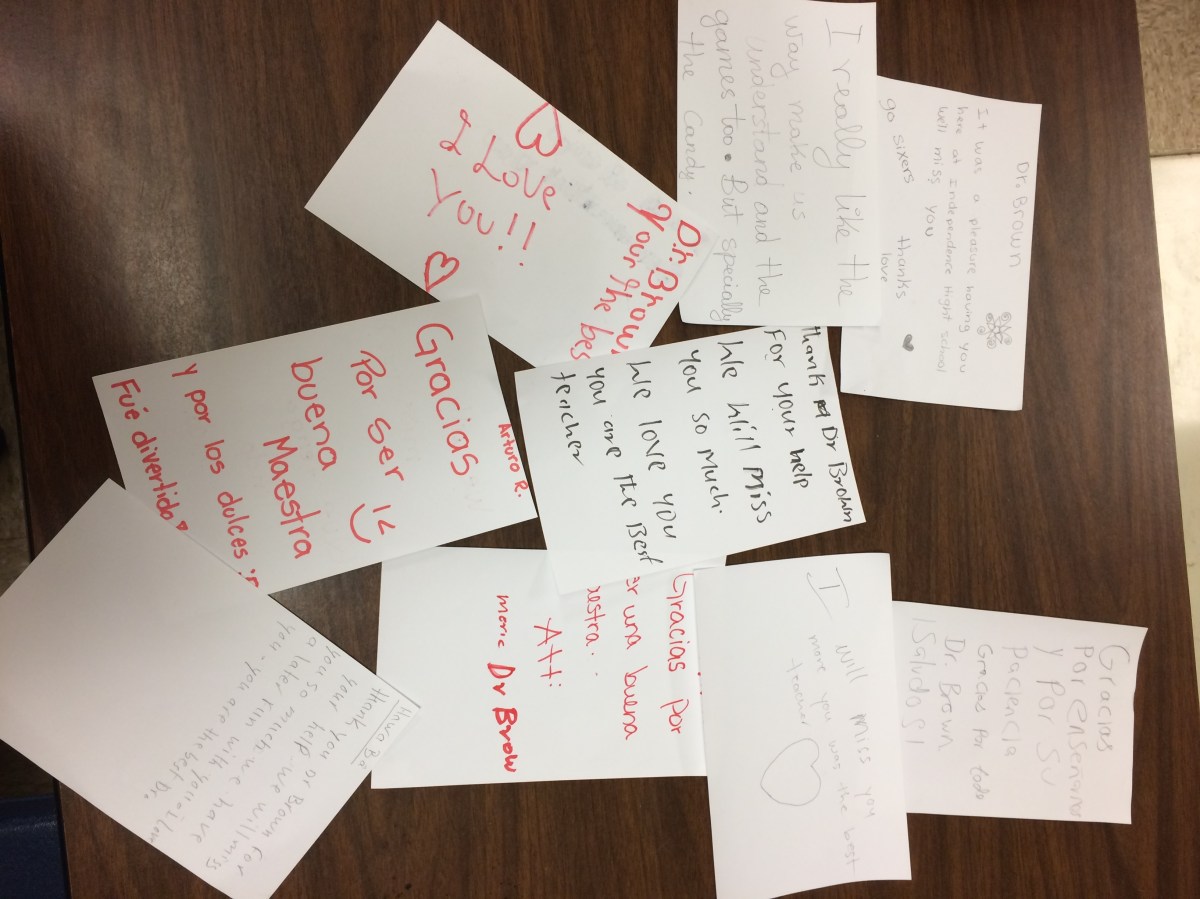 Dr. Brown
It was a pleasure having you
here at Independence Hight school
well miss you
go sixers thanks
love
I really like the
way make us
understand and the
games too. But specially
the candy.
Dr. Brown
Your the bes
I Love
You!!
Thank Dr Brown
For your help
We Will Miss
You so Much.
We love you
you are The Best
teacher
Arturo R.
Gracias
Por ser
buena
Maestra
y por los dulces
Fué divertido
Gracias
por enseñarnos
y por su
paciencia
Gracias por todo
Dr. Brown
¡Saludos!
I will miss you
more you was the best
teacher
Gracias Por
er una buena
estra.
Att:
Dr Brow
Hawa Ba
thank you Dr Brown for
your help. we will miss
you so much we have
a later tim with you. I lov
you. you are the best Dr.